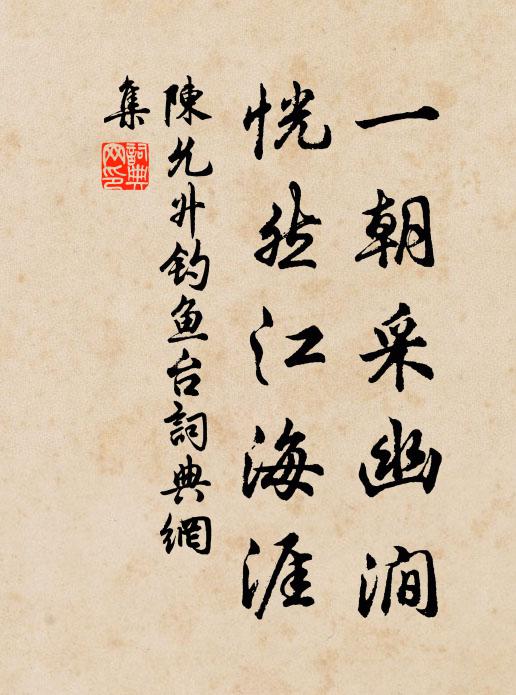 一朝采幽澗
恍然江海涯
陳允升钓鱼台詞典網
集
詞典網印